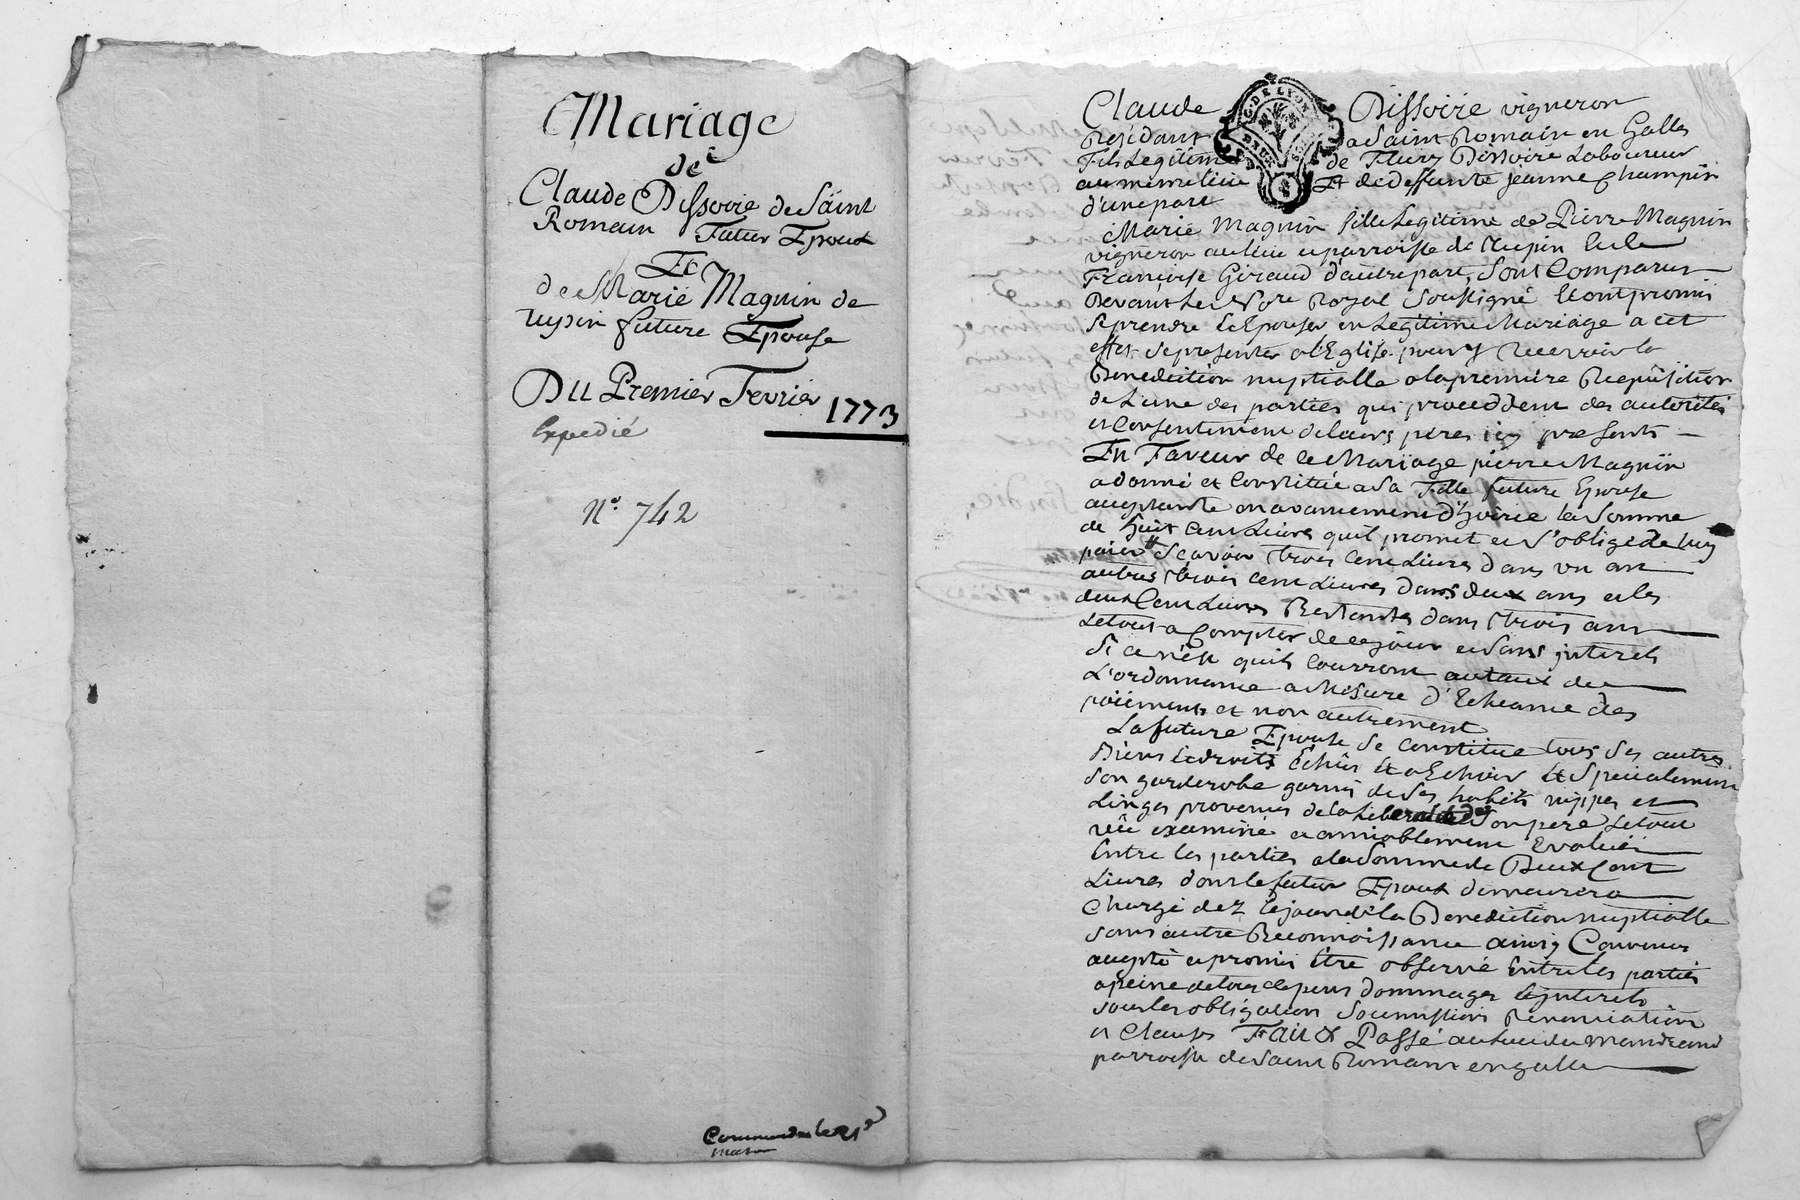 Mariage
de
Claude Dissoire de Saint
Romain Futur Epoux
Et
de Marie Magnin de
rupin future Epouse
Du Premier Fevrier 1773
Expedié
N° 742
G. DE LYON
DEUX SOLS
Claude Dissoire vigneron
Résidant a Saint Romain en Galles
Fils Legitime de Fleury Dissoire Laboureur
au meme lieu Et de deffunte jeanne Champin
d'une part
Marie Magnin fille Legitime de Pierre Magnin
vigneron au lieu et parroisse de rupin et de
Françoise Giraud d'autre part, Sont Comparus
Devant Le No.re Royal Soussigné Et ont promis
se prendre et Epouser en Legitime Mariage a cet
effet se presenter a l'Eglise pour y recevoir la
Benediction nuptialle a la premiere Requisition
de L'une des parties qui proceddent des autorités
et Consentement de leurs peres icy presents
En Faveur de ce Mariage pierre Magnin
a donné et Constitué a Sa Fille future Epouse
acceptante en avancement d'hoirie la Somme
de huit Cent Livres qu'il promet et S'oblige de luy
paier Scavoir trois Cent Livres dans un an
autres trois Cent Livres dans deux ans et les
deux Cent Livres Restantes dans trois ans
Le tout a Compter de ce jour et Sans interets
Si ce n'est qu'ils Courront au taux de
L'ordonnance a Mesure d'Echeance des
paiements et non autrement
La future Epouse Se Constitue tous Ses autres
Biens et droits Echus Et a Echoir Et Specialement
Son garderobe garni de Ses habits nippes et
Linges provenus de la Liberalité de Son pere Le tout
vû examiné et amiablement Evalué
Entre les parties a la Somme de Deux Cent
Livres dont le futur Epoux demeurera
Chargé dez le jour de la Benediction nuptialle
Sans autre Reconnoissance ainsy Convenu
accepté et promis Etre observé Entre les parties
a peine de tous depens dommages et interets
sous les obligations Soumissions Renonciations
et Clauses Fait & Passé au lieu du
parroisse de Saint Romain en galle